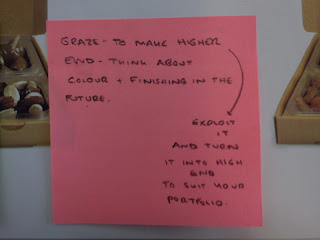 GRAZE - TO MAKE HIGHER
END - THINK ABOUT
COLOUR + FINISHING IN THE
FUTURE.
EXPLOIT
IT
AND TURN
IT INTO HIGH
END
TO SUIT YOUR
PORTFOLIO.